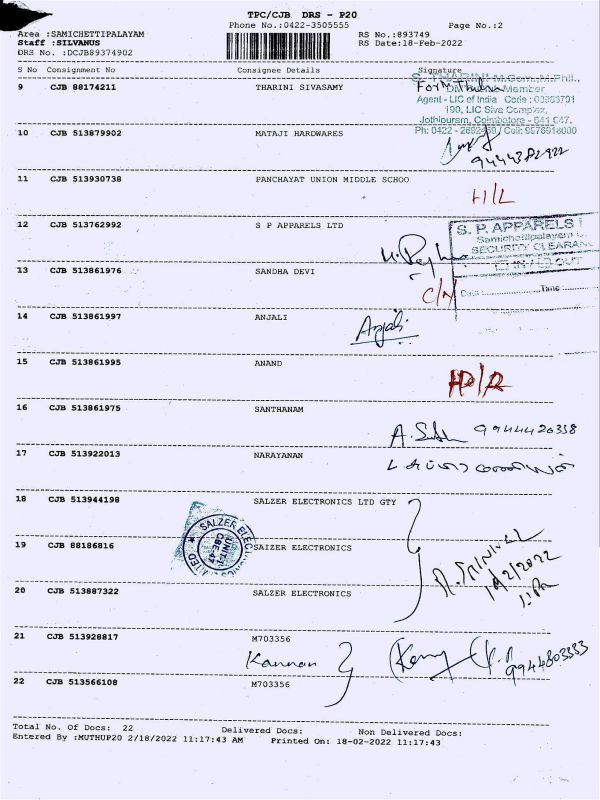 TPC/CJB DRS - P20
Phone No.:0422-3505555 Page No.:2
Area :SAMICHETTIPALAYAM RS No.:893749
Staff :SILVANUS RS Date:18-Feb-2022
DRS No. :DCJB89374902
S No Consignment No Consignee Details Signature
9 CJB 88174211 THARINI SIVASAMY
M.Com., M.Phil.,
Member
Agent - LIC of India Code :
190, LIC Siva Complex,
Jothipuram, Coimbatore - 641 047.
10 CJB 513879902 MATAJI HARDWARES
Ph: 0422 - Cell: 9976918000
11 CJB 513930738 PANCHAYAT UNION MIDDLE SCHOO
H/L
12 CJB 513762992 S P APPARELS LTD
S. P. APPARELS
Samichettipalayam
SECURITY CLEARAN
13 CJB 513861976 SANDHA DEVI
C/N
Time
14 CJB 513861997 ANJALI
Anjali
15 CJB 513861995 ANAND
16 CJB 513861975 SANTHANAM
9944420338
17 CJB 513922013 NARAYANAN
18 CJB 513944198 SALZER ELECTRONICS LTD GTY
SALZER ELECTRONICS
UNIT-
CBE-47
19 CJB 88186816 SAIZER ELECTRONICS
20 CJB 513887322 SALZER ELECTRONICS
21 CJB 513928817 M703356
Kannan
9944803333
22 CJB 513566108 M703356
Total No. Of Docs: 22 Delivered Docs: Non Delivered Docs:
Entered By :MUTHUP20 2/18/2022 11:17:43 AM Printed On: 18-02-2022 11:17:43